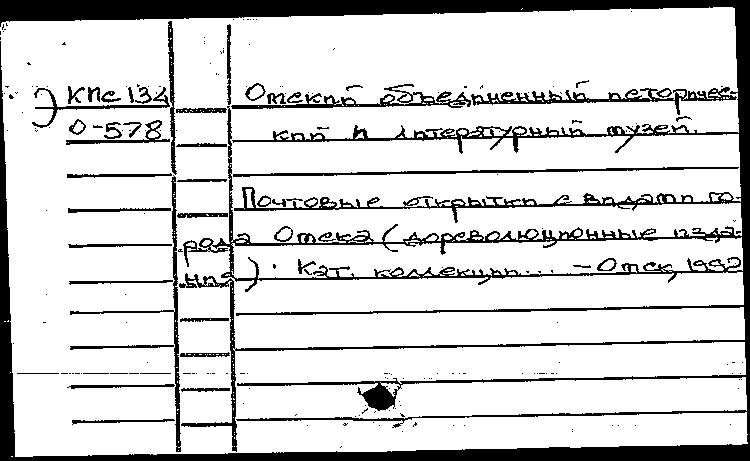 КПс 134 Омский объединенный историчес-
О-578 кий и литературный музей.
Почтовые открытки с видами го-
рода Омска (дореволюционные изда-
ния). Кат. коллекции... – Омск, 1992